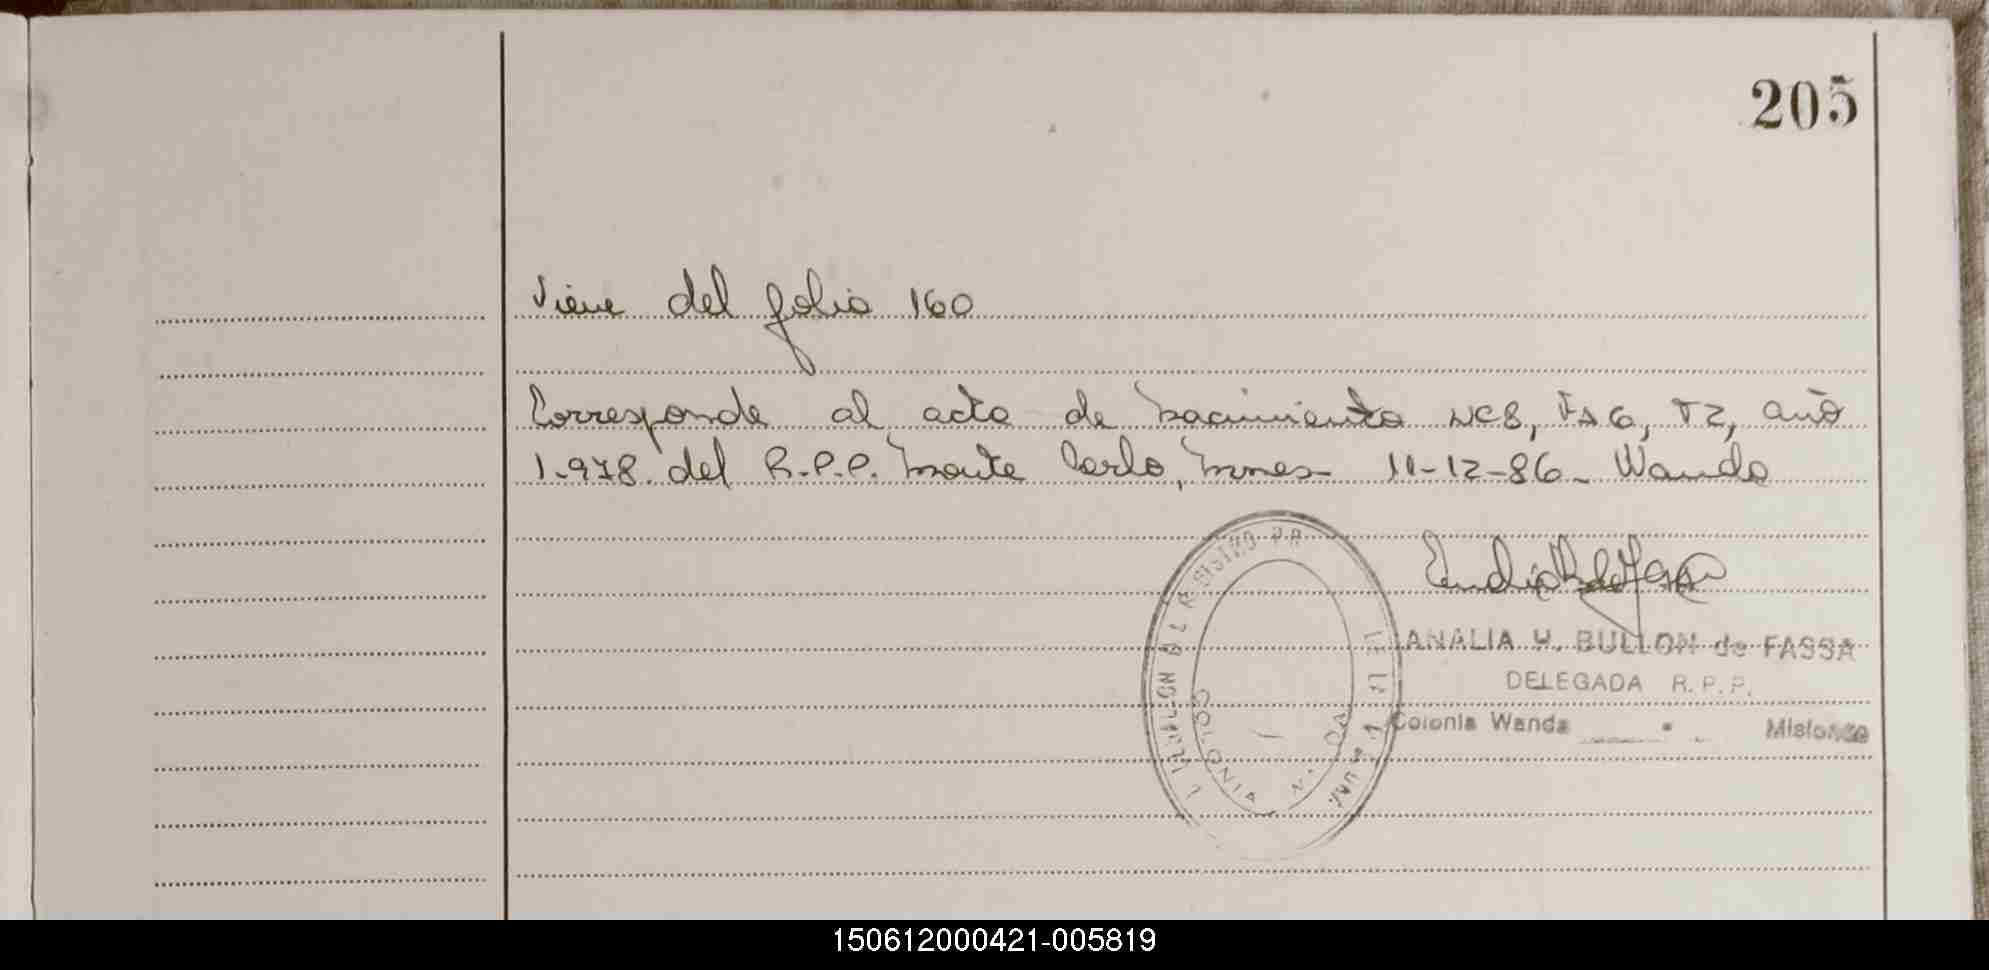 205
Viene del folio 160
Corresponde al acta de nacimiento Nº 8, Fº 6, T 2, año
1.978. del R.P.P. Monte Carlo, Mnes- 11-12-86- Wanda
ANALIA Y. BULLON de FASSA
DELEGADA R. P. P.
Colonia Wanda Misiones
COLONIA WANDA
150612000421-005819